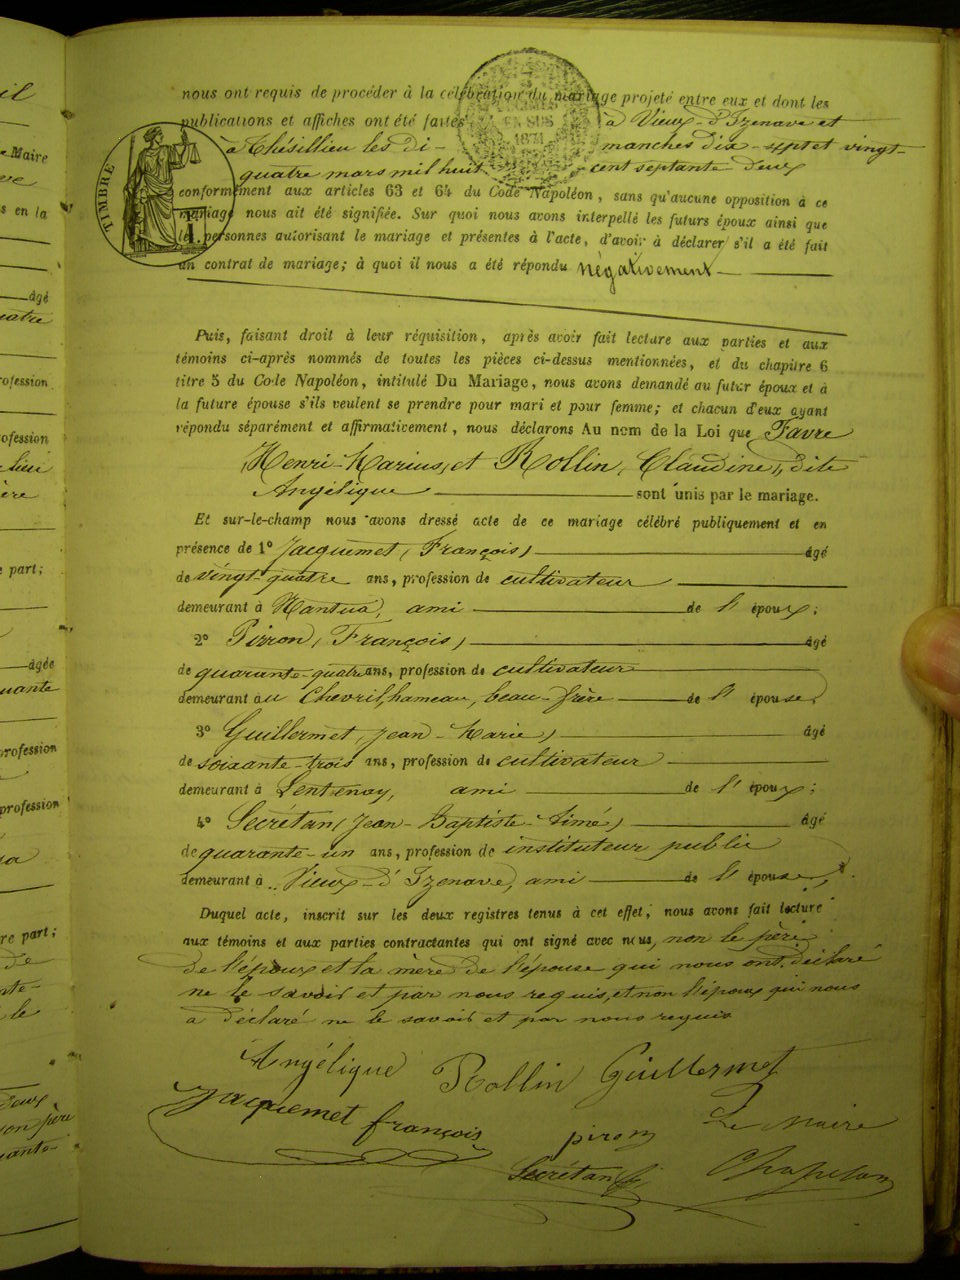 nous ont requis de procéder à la célébration du mariage projeté entre eux et dont les
publications et affiches ont été faites à Vieux-d'Izenave et
à Thésillieu les di- manches dix-sept et vingt-
quatre mars mil huit cent septante deux
conformément aux articles 63 et 64 du Code Napoléon, sans qu'aucune opposition à ce
mariage nous ait été signifiée. Sur quoi nous avons interpellé les futurs époux ainsi que
les personnes autorisant le mariage et présentes à l'acte, d'avoir à déclarer s'il a été fait
un contrat de mariage; à quoi il nous a été répondu négativement
TIMBRE
EN SUS
1871
Puis, faisant droit à leur réquisition, après avoir fait lecture aux parties et aux
témoins ci-après nommés de toutes les pièces ci-dessus mentionnées, et du chapitre 6
titre 5 du Code Napoléon, intitulé Du Mariage, nous avons demandé au futur époux et à
la future épouse s'ils veulent se prendre pour mari et pour femme; et chacun d'eux ayant
répondu séparément et affirmativement, nous déclarons Au nom de la Loi que Favre
(Henri-Marius) et Rollin (Claudine), dite
Angélique sont unis par le mariage.
Et sur-le-champ nous avons dressé acte de ce mariage célébré publiquement et en
présence de 1º Jacquemet (François) âgé
de vingt-quatre ans, profession de cultivateur
demeurant à Nantua, ami de l'époux;
2º Pirron (François) âgé
de quarante-quatre ans, profession de cultivateur
demeurant au Chevril, hameau, beau-frère de l'épouse;
3º Guillermet, Jean-Marie) âgé
de soixante-trois ans, profession de cultivateur
demeurant à Lentenay, ami de l'époux;
4º Secrétan (Jean-Baptiste-Aimé) âgé
de quarante-un ans, profession de instituteur public
demeurant à Vieux-d'Izenave, ami de l'épouse,
Duquel acte, inscrit sur les deux registres tenus à cet effet, nous avons fait lecture
aux témoins et aux parties contractantes qui ont signé avec nous, non le père
de l'époux et la mère de l'épouse qui nous ont déclaré
ne le savoir et par nous requis, et non l'époux qui nous
a déclaré ne le savoir et par nous requis
Angélique Rollin Guillermet
Jacquemet françois piron Le Maire
Secrétan Chapelan